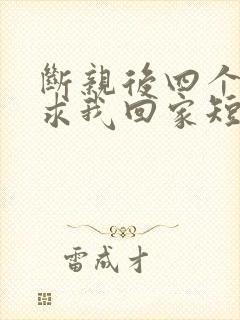 斷親後四个
求我回家短
雷成才